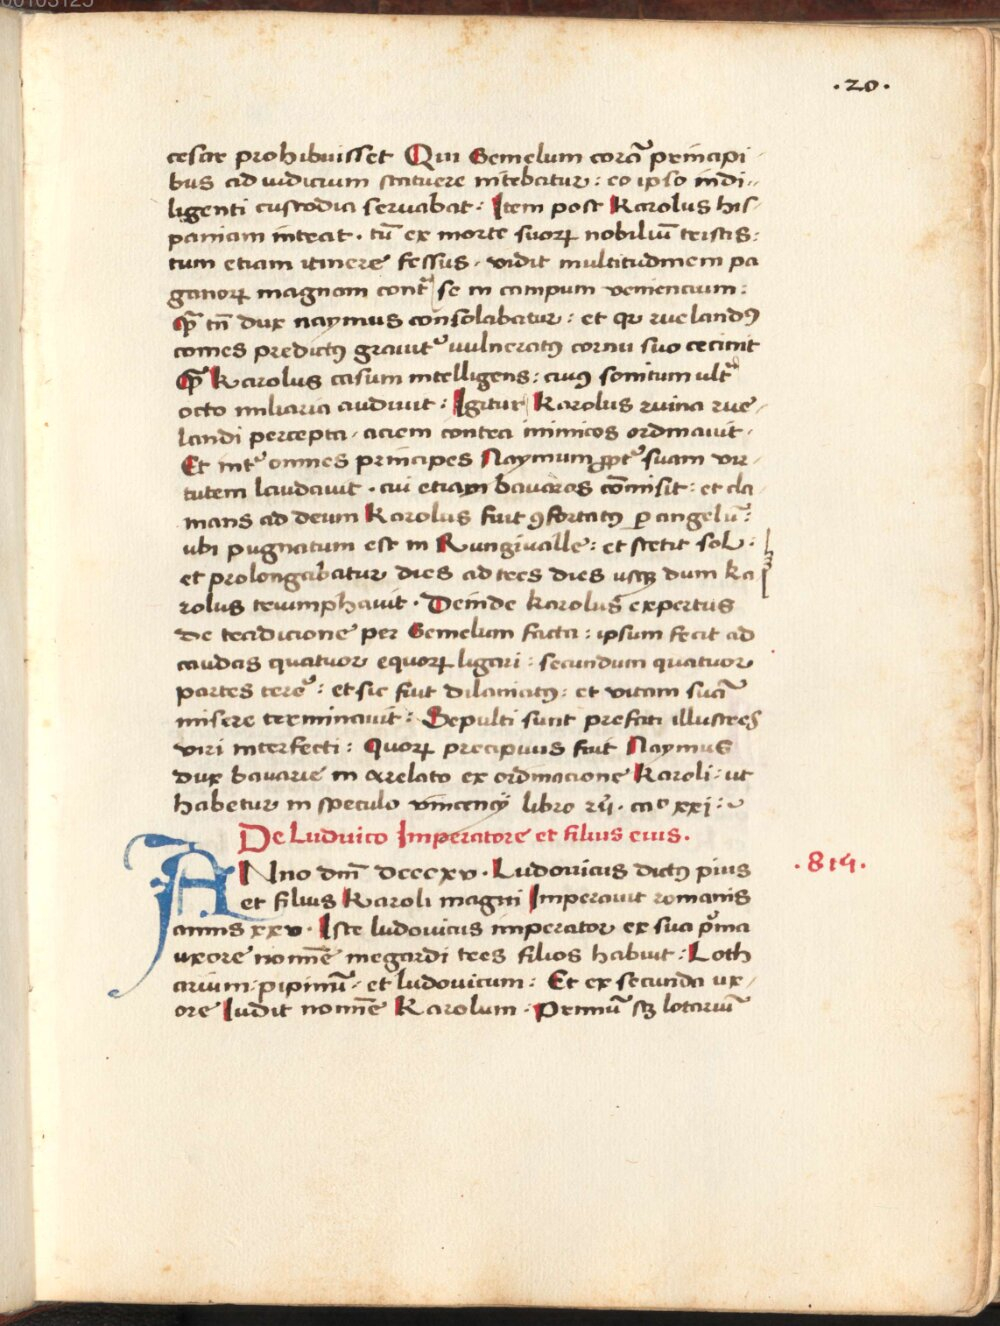 00103125
.20.
cesar prohibuisset Qui Gemelum corā principi
bus ad iudicium statuere nitebatur : eo ipso indi
ligenti custodia servabat : Item post Karolus his
paniam intrat . tū ex morte suoꝝ nobiliū tristis :
tum etiam itinere fessus . vidit multitudinem pa
ganoꝝ magnam contª se in campum veniencium :
tñ dux naymus consolabatur : et qr ruelandꝰ
comes predictꝰ gravitᵉ vulneratꝰ cornu suo cecinit
Karolus casum intelligens : cuiꝰ sonitum ultª
octo miliaria audivit : Igitur Karolus ruina rue
landi percepta . aciem contra inimicos ordinavit .
Et intᵉ omnes principes Naymum ꝓptᵉ suam vir
tutem laudavit . cui etiam bavaros cōmisit : et cla
mans ad deum Karolus fuit ꝯfortatꝰ ꝑ angelū :
ubi pugnatum est in Rungivalle : et stetit sol :
et prolongabatur dies ad tres dies usqꝫ dum ka
rolus triumphavit . Deinde karolus expertus
de tradicione per Gemelum facta : ipsum fecit ad
caudas quatuor equoꝝ ligari : secundum quatuor
partes terre : et sic fuit dilaniatꝰ : et vitam suā
misere terminavit : Sepulti sunt prefati illustres
viri interfecti : Quoꝝ precipuus fuit Naymus
dux bavarie in arelato ex ordinacione Karoli : ut
habetur in speculo vincencij libro . caᵒ xxi :
De Luduico Imperatore et filius eius .
ANno dnī dcccxv . Ludovicus dictꝰ pius
et filius Karoli magni Imperavit romanis
annis xxv . Iste ludovicus imperator ex sua pⁱma
uxore nomīe megardi tres filios habuit : Loth
arium . pipinū . et ludovicum : Et ex secunda ux
ore Iudit nomīe Karolum . Primū sꝫ lotariū
. 814 .